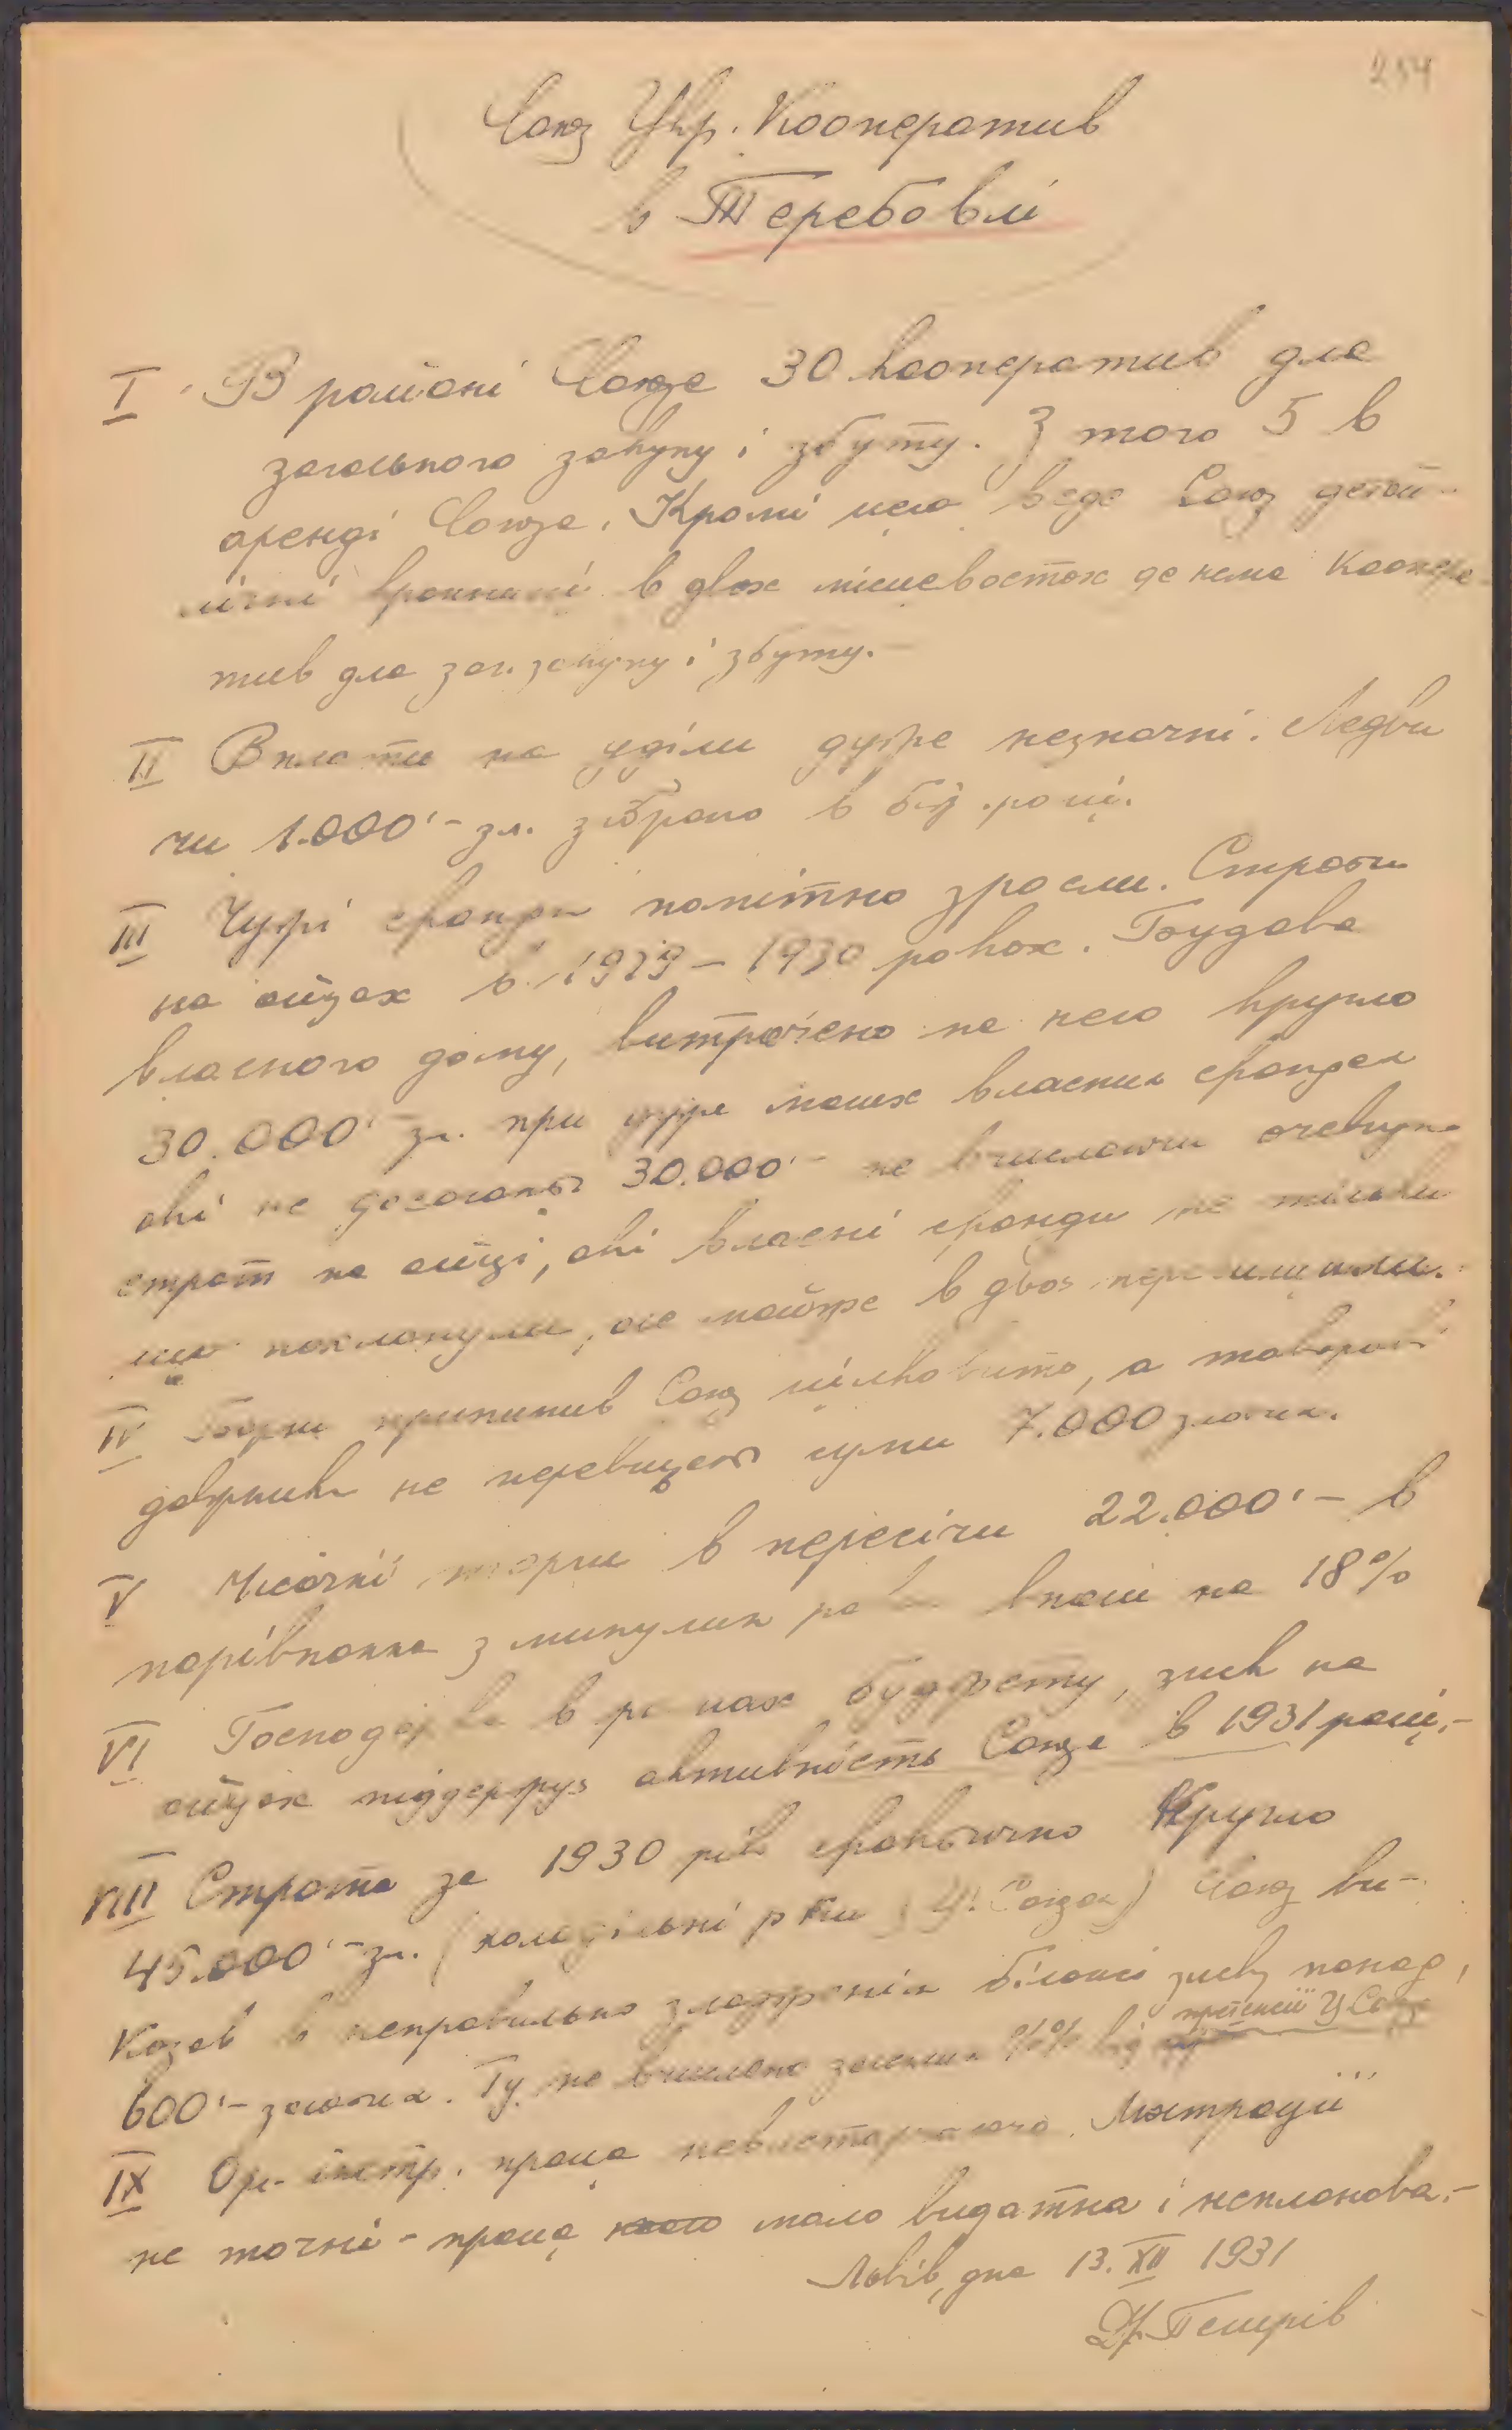 254
Союз Укр. Кооператив
в Теребовлі
I В районі Союза 30 кооператив для
загального закупу і збуту. З того 5 в
аренді Союза. Кромі цего веде Союз детай-
лічні крамниці в двох місцевостях де нема коопера-
тив для заг. закупу і збуту.-
II Вплати на уділи дуже незначні. Ледви
чи 1.000'- зл. зібрано в біж. році.
III Чужі фонди помітно зросли. Страти
на яйцях в 1929 – 1930 роках. Будова
власного дому, витрачено на него кругло
30.000'- зл. при дуже малих власних фондах
які не досягають 30.000'- не вчисляючи очевидно
страт на яйці, які власні фонди не тільки
що похлонули, але майже в двоє перевищили.
IV Борги припинив Союз цілковито, а товарові
довжники не перевищают суми 7.000 золотих.
V Місячні торги в пересічи 22.000'- в
порівнанню з минулим впали на 18%
VI Господарка в рамах буджету, зиск на
яйцях піддержує активність Союза в 1931 році.-
VIII Страта за 1930 рік фактично кругло
45.000'- зл. (молочарські р-ки Союз ви-
казав в неправильно зложенім білянсі зиску понад
600'- золотих. Ту не вчислено залеглих %% від претенсії ЦСоюза
IX Орг. інстр. праця невистарчаюча. Люстрації
не точні - праця мало видатна і непланова.-
Львів, дня 13. XII 1931